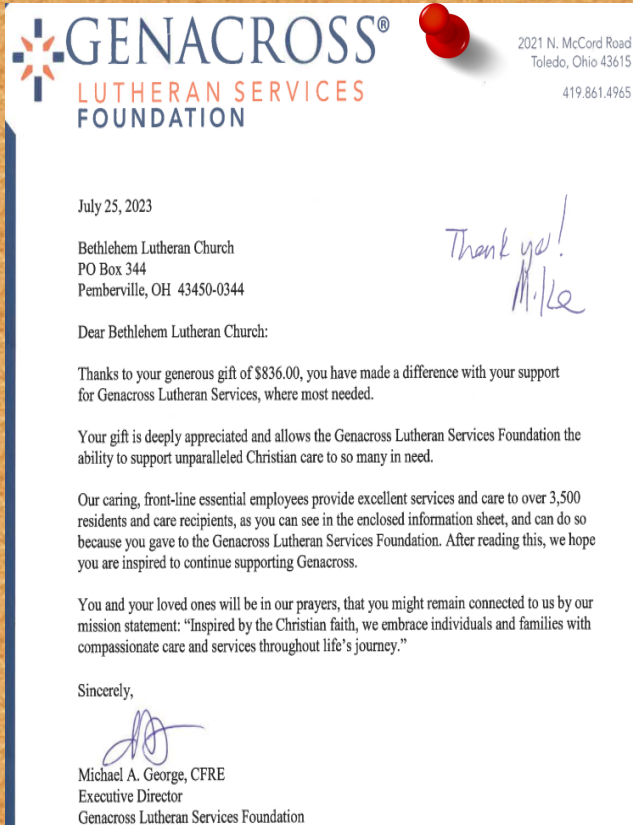 GENACROSS®
LUTHERAN SERVICES
FOUNDATION
2021 N. McCord Road
Toledo, Ohio 43615
419.861.4965
July 25, 2023
Thank ya!
Mike
Bethlehem Lutheran Church
PO Box 344
Pemberville, OH 43450-0344
Dear Bethlehem Lutheran Church:
Thanks to your generous gift of $836.00, you have made a difference with your support
for Genacross Lutheran Services, where most needed.
Your gift is deeply appreciated and allows the Genacross Lutheran Services Foundation the
ability to support unparalleled Christian care to so many in need.
Our caring, front-line essential employees provide excellent services and care to over 3,500
residents and care recipients, as you can see in the enclosed information sheet, and can do so
because you gave to the Genacross Lutheran Services Foundation. After reading this, we hope
you are inspired to continue supporting Genacross.
You and your loved ones will be in our prayers, that you might remain connected to us by our
mission statement: “Inspired by the Christian faith, we embrace individuals and families with
compassionate care and services throughout life’s journey.”
Sincerely,
Michael A. George, CFRE
Executive Director
Genacross Lutheran Services Foundation